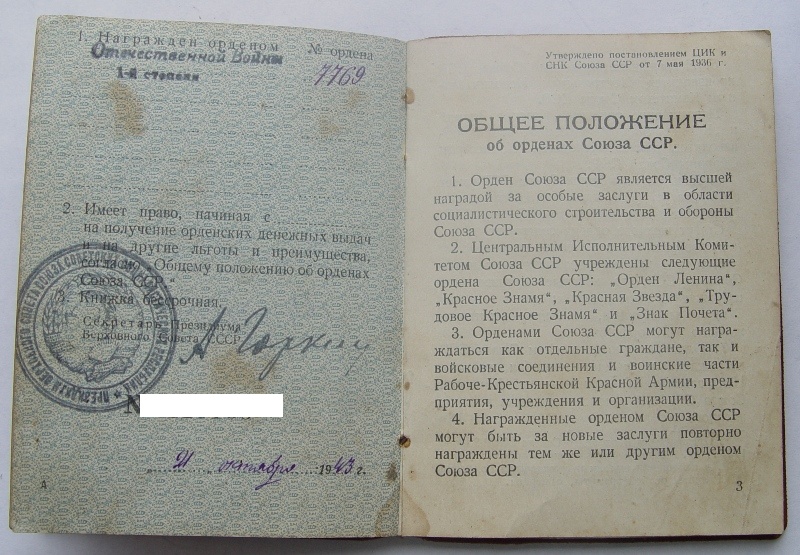 1. Награжден орденом № ордена
Отечественной Войны 7769
1-й степени
2. Имеет право, начиная с
на получение орденских денежных выдач
и на другие льготы и преимущества,
согласно „Общему положению об орденах
Союза ССР“
3. Книжка бессрочная.
Секретарь Президиума
Верховного Совета СССР
А Горкин
ПРЕЗИДИУМ ВЕРХОВНОГО СОВЕТА СОЮЗА СОВЕТСКИХ
№
21 октября 1943 г.
4
Утверждено постановлением ЦИК и
СНК Союза ССР от 7 мая 1936 г.
ОБЩЕЕ ПОЛОЖЕНИЕ
об орденах Союза ССР.
1. Орден Союза ССР является высшей
наградой за особые заслуги в области
социалистического строительства и обороны
Союза ССР.
2. Центральным Исполнительным Коми-
тетом Союза ССР учреждены следующие
ордена Союза ССР: „Орден Ленина“,
„Красное Знамя“, „Красная Звезда“, „Тру-
довое Красное Знамя“ и „Знак Почета“.
3. Орденами Союза ССР могут награ-
ждаться как отдельные граждане, так и
войсковые соединения и воинские части
Рабоче-Крестьянской Красной Армии, пред-
приятия, учреждения и организации.
4. Награжденные орденом Союза ССР
могут быть за новые заслуги повторно
награждены тем же или другим орденом
Союза ССР.
3